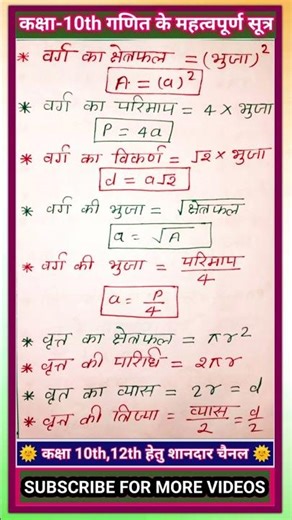 कक्षा-10th गणित के महत्वपूर्ण सूत्र
* वर्ग का क्षेत्रफल = (भुजा)²
A = (a)²
* वर्ग का परिमाप = 4 × भुजा
P = 4a
* वर्ग का विकर्ण = √2 × भुजा
d = a√2
* वर्ग की भुजा = √क्षेत्रफल
a = √A
* वर्ग की भुजा = परिमाप/4
a = P/4
* वृत्त का क्षेत्रफल = πr²
* वृत्त की परिधि = 2πr
* वृत का व्यास = 2r = d
* वृत्त की त्रिज्या = व्यास/2 = d/2
🌞 कक्षा 10th,12th हेतु शानदार चैनल 🌞
SUBSCRIBE FOR MORE VIDEOS